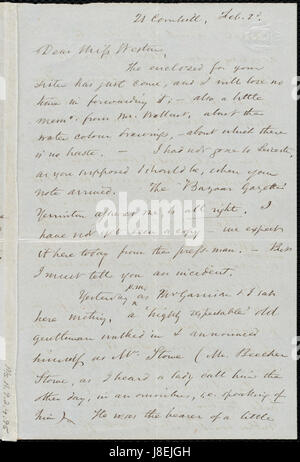 21 Cornhill, Feb. 2d.
Dear Miss Weston,
The enclosed for your
sister has just come, and I will lose no
time in forwarding it; – also a little
memo. from Mr. Wallcut, about the
water colour drawings, – about which there
is no haste. – I had not gone to Leicester,
as you supposed I should be, when your
note arrived. The "Bazaar Gazette"
Yerrinton assures me, is all right. I
have not yet seen a copy – we expect
it here today from the press-man. – But
I must tell you an incident.
Yesterday p.m. as McGarrison & I sat
here writing, a highly respectable old
gentleman walked in & announced
himself as Mr. Stowe (Mr. Beecher
Stowe, as I heard a lady call him the
other day, in an omnibus, i.e. speaking of
him). He was the bearer of a little
Ms. A.9.2.4, 95
alamy
J8EJGH